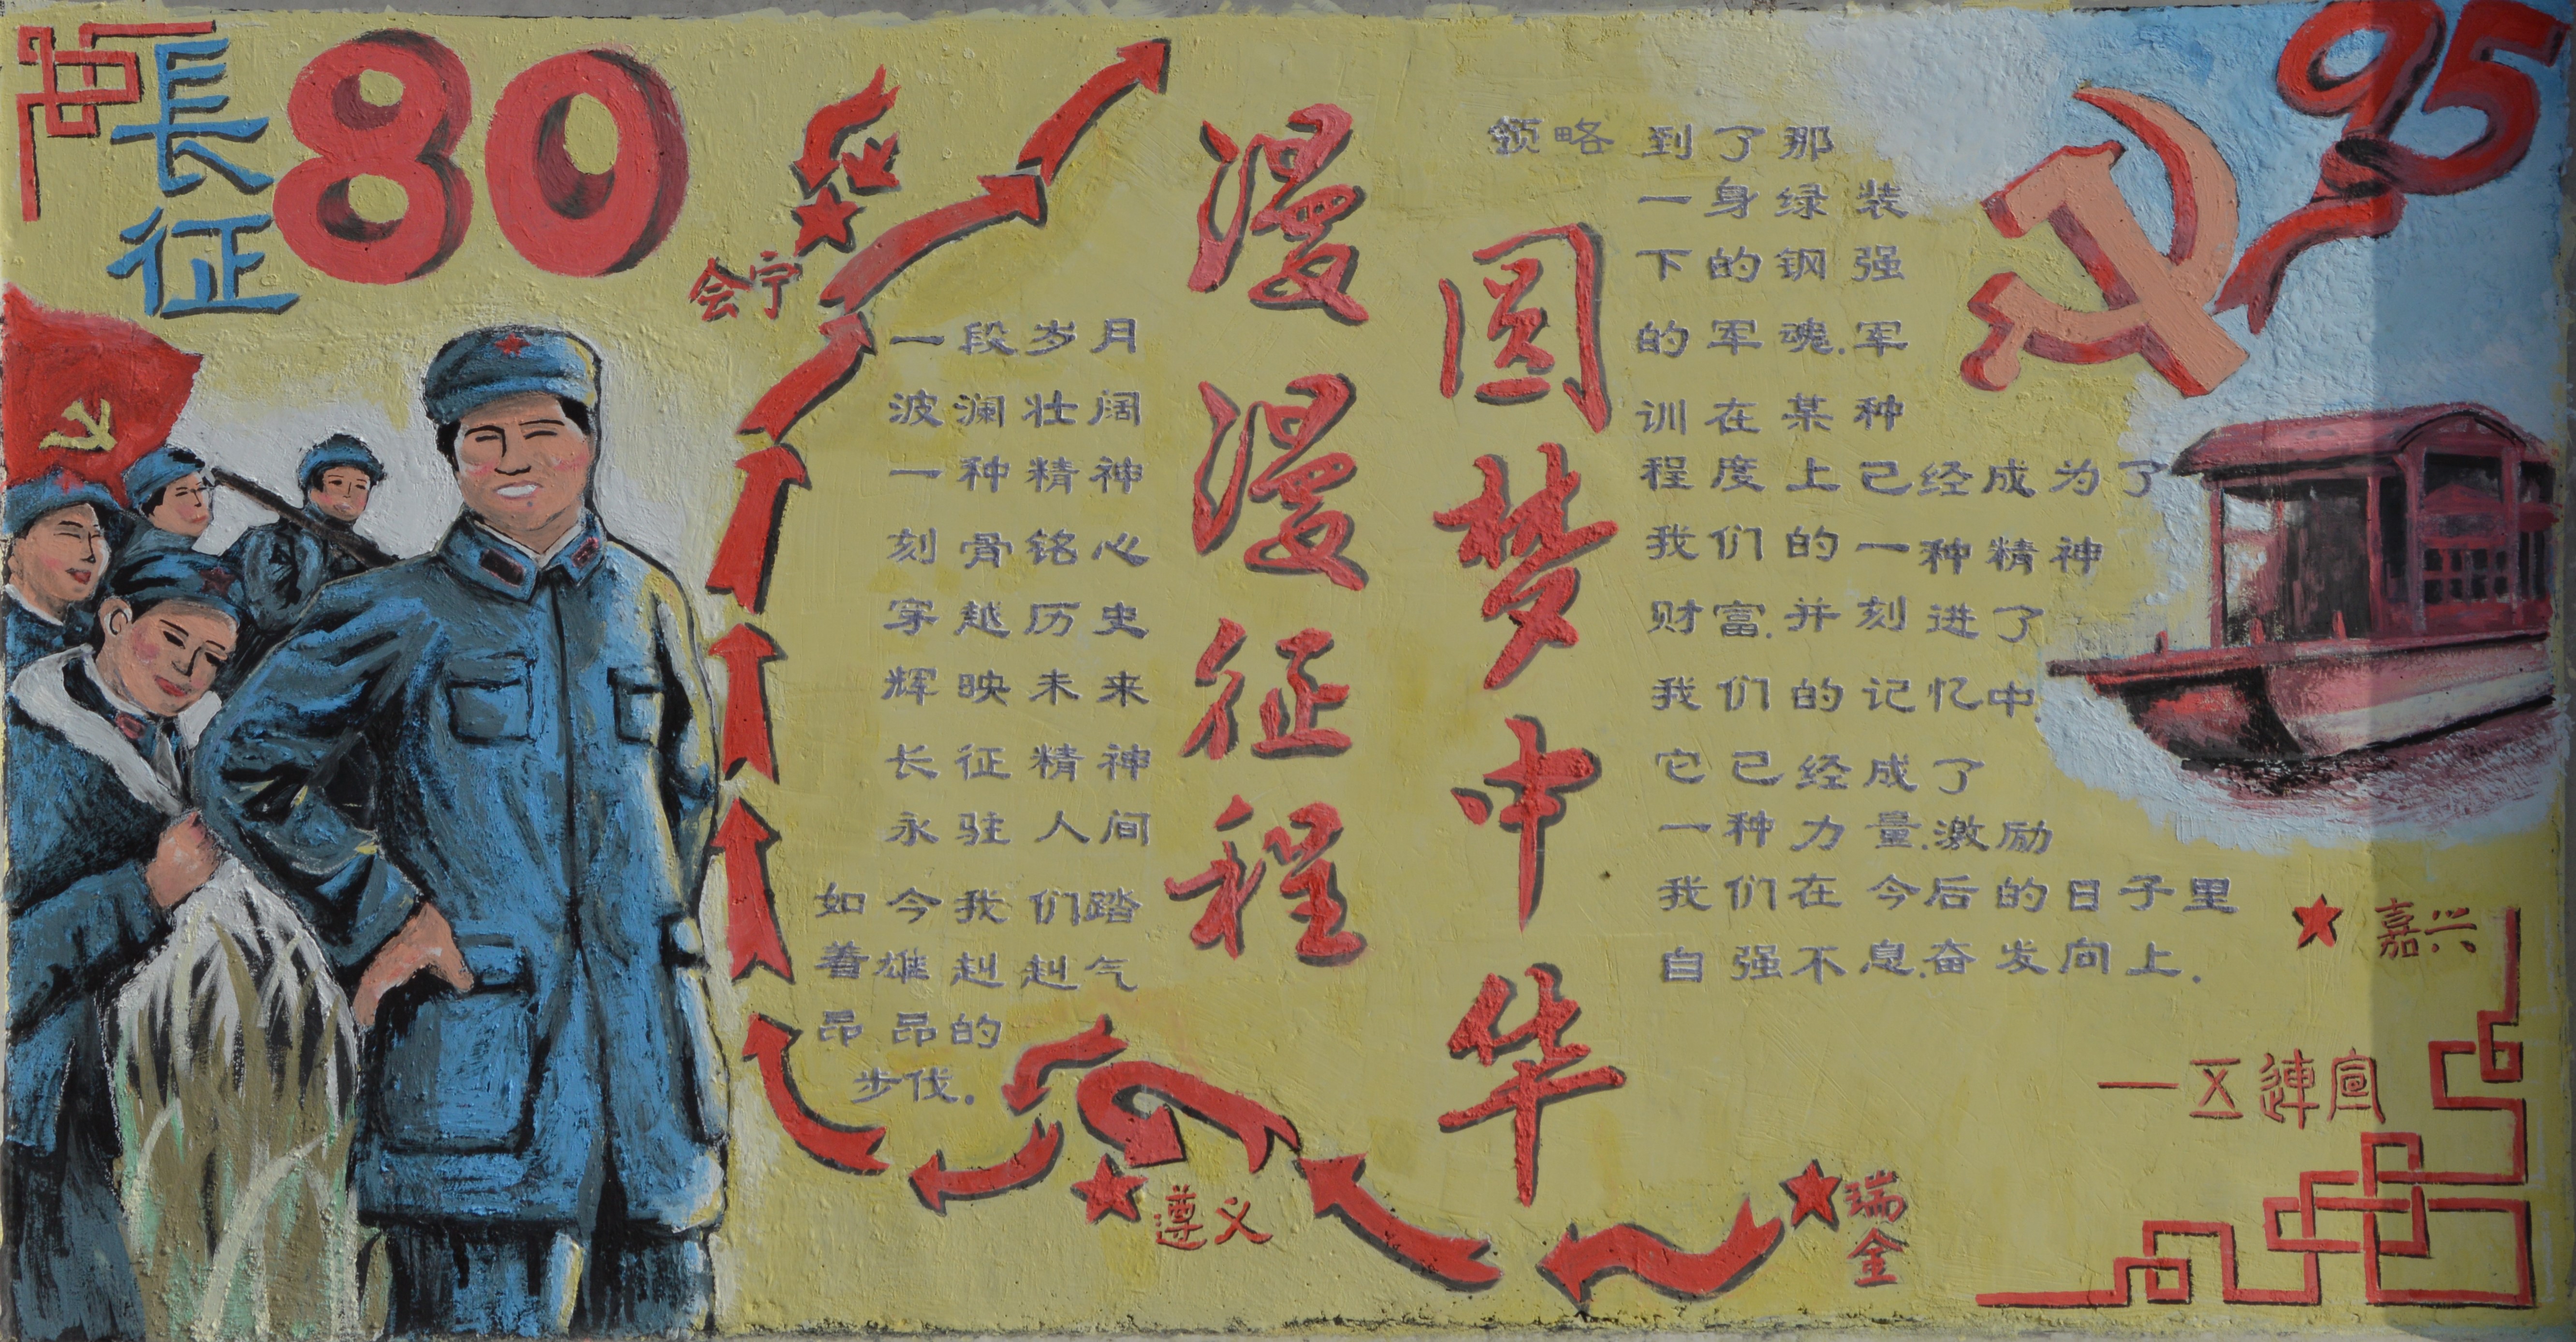 長征
80
会宁
一段岁月
波澜壮阔
一种精神
刻骨铭心
穿越历史
辉映未来
长征精神
永驻人间
如今我们踏
着雄赳赳气
昂昂的
步伐.
遵义
漫漫征程
圆梦中华
领略到了那
一身绿装
下的钢强
的军魂.军
训在某种
程度上已经成为了
我们的一种精神
财富.并刻进了
我们的记忆中.
它已经成了
一种力量.激励
我们在今后的日子里
自强不息.奋发向上.
瑞金
95
嘉兴
一区連宣